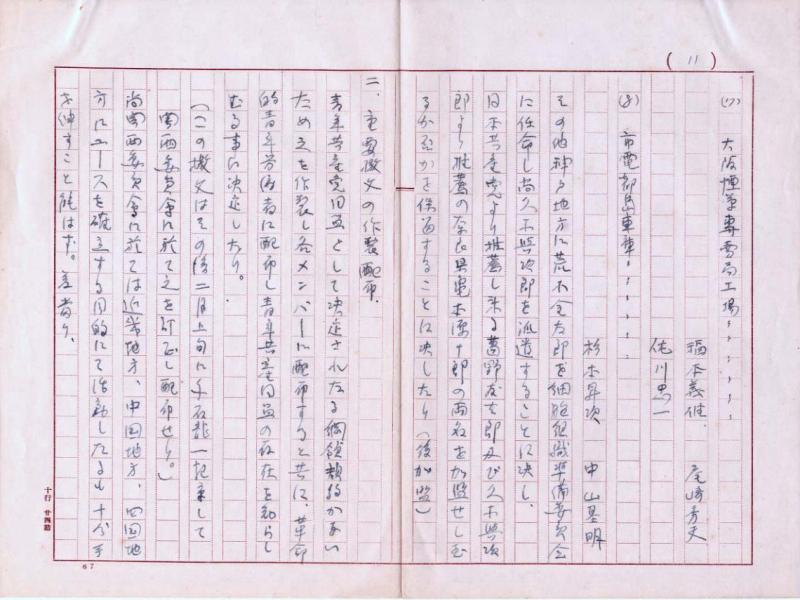 (11)
(ワ) 大阪煙草専売局工場、、、、、
福本義雄、 尾崎秀夫
佐川忠一
(カ) 市電都島車庫、、、、、、
杉本昇次 中山基明
その他神戸地方に荒木金太郎を細胞組織準備委員会
に任命し尚久木興次郎を派遣することに決し、
日本共産党より推薦し来る葛野友太郎及び久木興次
郎より推薦の奈良県電本源十郎の両名を加盟せしむ
るか否かを保留することに決したり(後加盟)
二、重要檄文の作製配布、
青年共産党同盟として決定されたる綱領規約がない
ため之を作製し各メンバーに配布すると共に、革命
的青年労働者に配布し青年共産同盟の存在を知らし
むる事に決定したり。
(この檄文はその后二月上旬に千石龍一起草して
関西委員会に於て之を訂正し配布せり。)
尚関西委員会に於ては近畿地方、中国地方、四国地
方にニュースを確立する目的にて活動したるも十分手
を伸すこと能はず。
十行 廿四詰
67